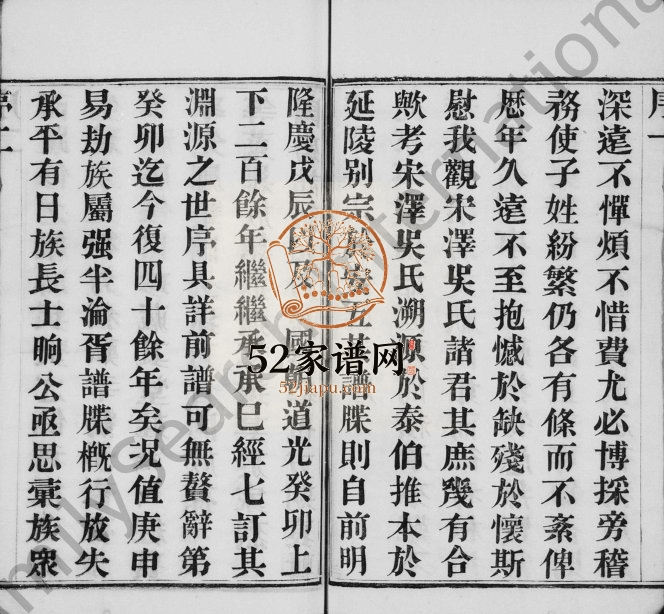 序一
深遠不憚煩不惜費尤必博採旁稽
務使子姓紛繁仍各有條而不紊俾
歴年久遠不至抱憾於缺殘於懷斯
慰我觀宋澤吳氏諸君其庶幾有合
歟考宋澤吳氏溯源於泰伯推本於
延陵别宗 安五 譜牒則自前明
隆慶戊辰 及 國朝道光癸卯上
下二百餘年繼繼承承已經七訂其
淵源之世序具詳前譜可無贅辭第
癸卯迄今復四十餘年矣况值庚申
易劫族屬强半淪胥譜牒槪行放失
承平有日族長士晌公亟思彙族衆
序二
52家谱网
52jiapu.com
FamilySearch International